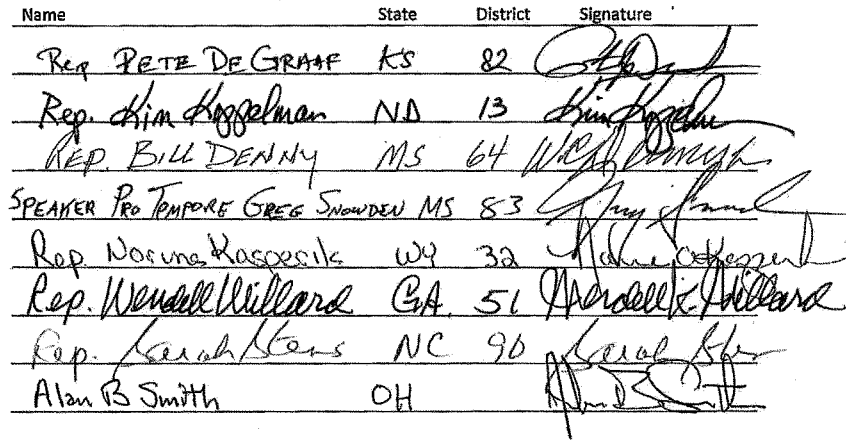 Name State District Signature
Rep PETE DE GRAAF KS 82
Rep. Kim Koppelman ND 13 Kim Koppelman
REP. BILL DENNY MS 64
SPEAKER PRO TEMPORE GREG SNOWDEN MS 83
Rep. Norine Kasperik WY 32
Rep. Wendell Willard GA. 51 Wendell K. Willard
Rep. Sarah Stevens NC 90 Sarah Stevens
Alan B Smith OH